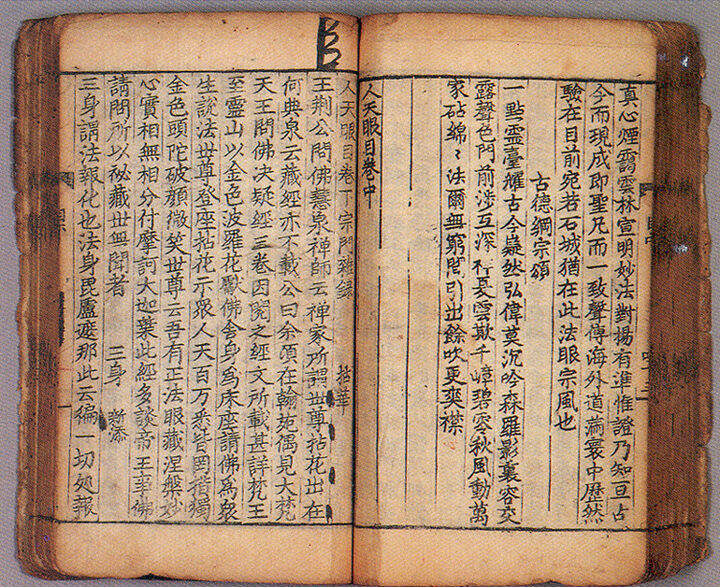 真心煙靄雲林宣明妙法對揚有準惟證乃知亘古
今而現成即聖凡而一致聲傳海外道滿寰中歷然
驗在目前宛若石城猶在此法眼宗風也
古德綱宗頌
一點霊臺耀古今巍然弘偉莫沉吟森羅影裏容交
露聲色門前涉互深 夏雲欺千嶂碧 秋風動萬
家砧綿〻法爾無窮 引出餘吹更爽襟
人天眼目卷中
人天眼目卷下 宗門雜録 拈華
王荊公問佛慧泉禪師云禅家所謂世尊拈花出在
何典泉云藏經亦不載公曰余頃在翰苑偶見大梵
天王問佛決疑經三卷因閱之經文所載甚詳梵王
至靈山以金色波羅花獻佛舍身爲床座請佛爲衆
生說法世尊登座拈花示衆人天百万悉皆罔措獨
金色頭陀破顏微笑世尊云吾有正法眼藏涅槃妙
心實相無相分付摩訶大迦葉此經多談帝王事佛
請問所以秘藏世無聞者 三身 新添
三身謂法報化也法身毘盧遮那此云徧一切処報